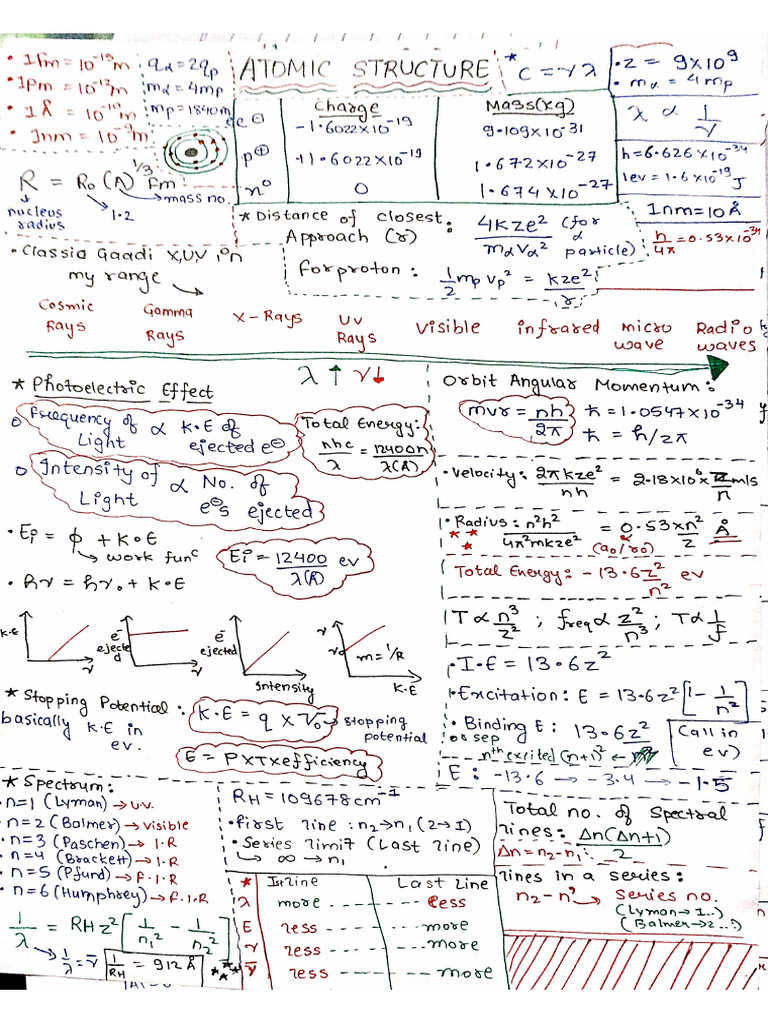 • 1Fm = 10⁻¹⁵m
• 1Pm = 10⁻¹²m
• 1Å = 10⁻¹⁰m
• 1nm = 10⁻⁹m
qα = 2qp
mα = 4mp
mp = 1840m
ATOMIC STRUCTURE
* C = ν λ
• 2 = 9×10⁹
• mα = 4mp
λ α 1/ν
Charge Mass(Kg)
e⊖ -1.6022×10⁻¹⁹ 9.109×10⁻³¹
p⊕ +1.6022×10⁻¹⁹ 1.672×10⁻²⁷
n⁰ 0 1.674×10⁻²⁷
h = 6.626×10⁻³⁴
1ev = 1.6×10⁻¹⁹J
1nm = 10Å
h/4π = 0.53×10⁻³⁴
R = R₀(A)^1/3 Fm
nucleus radius
1.2
mass no.
* Distance of closest Approach (r) : 4KZe²/mαVα² (for α particle)
for proton : 1/2 mp Vp² = KZe²/r
• Classic Gaadi X,U,V iOn
my range
Cosmic Rays Gamma Rays X-Rays UV Rays Visible infrared micro wave Radio waves
λ↑ ν↓
* Photoelectric Effect
o Frequency of Light α K.E of ejected e⊖
o Intensity of Light α No. of e⊖s ejected
Total Energy:
nhc/λ = 12400n/λ(Å)
• Ei = ϕ + K.E
work funᶜ
Ei = 12400/λ(Å) ev
• hν = hν₀ + K.E
K.E ν
e⁻ ejected ν
e⁻ ejected Intensity
ν ν₀ m = 1/h K.E
* Stopping Potential :
basically K.E in ev.
K.E = q × V₀ stopping potential
E = P×T×efficiency
Orbit Angular Momentum:
mvr = nh/2π
ħ = 1.0547×10⁻³⁴
ħ = h/2π
• Velocity: 2πkze²/nh = 2.18×10⁶ z/n m/s
• Radius: n²h²/4π²mkze² = 0.53×n²/z Å
(a₀/r₀)
Total Energy: -13.6z²/n² ev
T α n³/z² ; freq α z²/n³ ; T α 1/f
• I.E = 13.6z²
• Excitation: E = 13.6z²[1 - 1/n²]
• Binding E : 13.6z²
or sep
nth excited (n+1)²
(all in ev)
E : -13.6 → -3.4 → -1.5
* Spectrum:
• n=1 (Lyman) → U.V.
• n=2 (Balmer) → visible
• n=3 (Paschen) → I.R
• n=4 (Brackett) → I.R
• n=5 (Pfund) → F.I.R
• n=6 (Humphrey) → F.I.R
1/λ = RHz²[1/n₁² - 1/n₂²]
1/λ = ν̄
1/RH = 912Å
RH = 109678cm⁻¹
• first line : n₂→n₁ (2→1)
• Series limit (Last line)
∞ → n₁
* 1st line Last line
λ more less
E less more
ν less more
ν̄ less more
Total no. of Spectral
lines: Δn(Δn+1)/2
Δn = n₂-n₁
lines in a series:
n₂-n' → Series no.
(Lyman→1..)
(Balmer→2..)